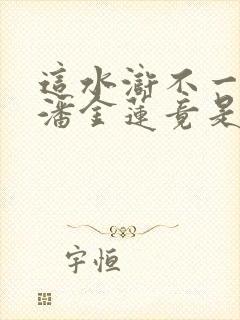 這水滸不一
潘金蓮竟是
宇恒